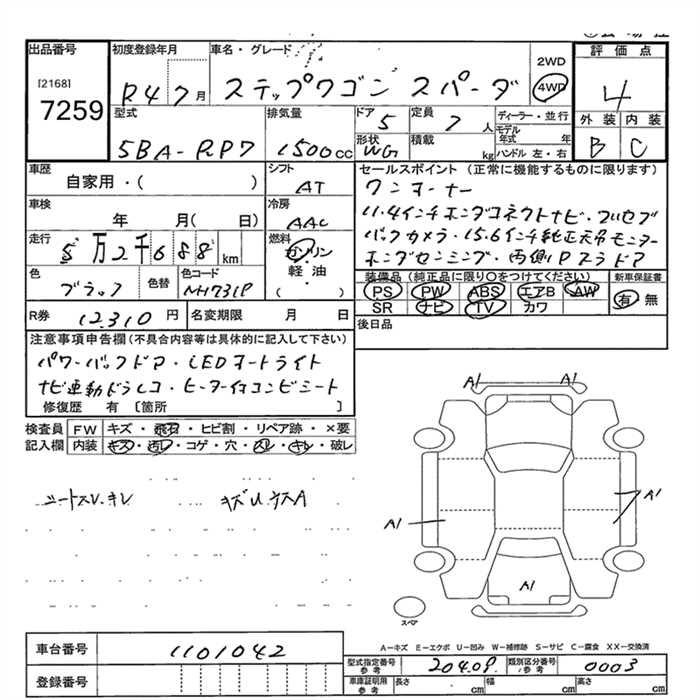 出品番号
[2168]
7259
初度登録年月
R4 7月
車名・グレード
ステップワゴン スパーダ
2WD
4WD
評価点
4
外装 内装
B C
型式
5BA-RP7
排気量
1500cc
ドア
5
定員
7人
形状
WG
積載
kg
ディーラー・並行
モデル年式 年
ハンドル 左・右
車歴
自家用・( )
シフト
AT
車検
年 月( 日)
冷房
AAC
走行
5万2千688km
燃料
ガソリン
軽・油
( )
色
ブラック
色替
色コード
NH731P
R券 12,310円
名変期限 月 日
セールスポイント (正常に機能するものに限ります)
ワンオーナー
11.4インチホンダコネクトナビ・フルセグ
バックカメラ・15.6インチ純正天吊モニター
ホンダセンシング・両側Pスライドドア
装備品(純正品に限り○をつけてください)
PS PW ABS エアB AW
SR ナビ TV カワ
新車保証書
有 無
後日品
注意事項申告欄(不具合内容等は具体的に記入して下さい)
パワーバックドア・LEDオートライト
ナビ連動ドラレコ・ヒーター付コンビシート
修復歴 有 〔箇所 〕
検査員記入欄
FW キズ・飛石・ヒビ割・リペア跡・×要
内装 キズ・汚レ・コゲ・穴・スレ・キレ・破レ
シートスレ・キレ
A1 A1
A1
A1
A1
スペア
A-キズ E-エクボ U-凹み W-補修跡 S-サビ C-腐食 XX-交換済
車台番号 1101042
登録番号
型式指定番号 参考 20408
類別区分番号 参考 0003
車庫証明用 参考 長さ cm 幅 cm 高さ cm